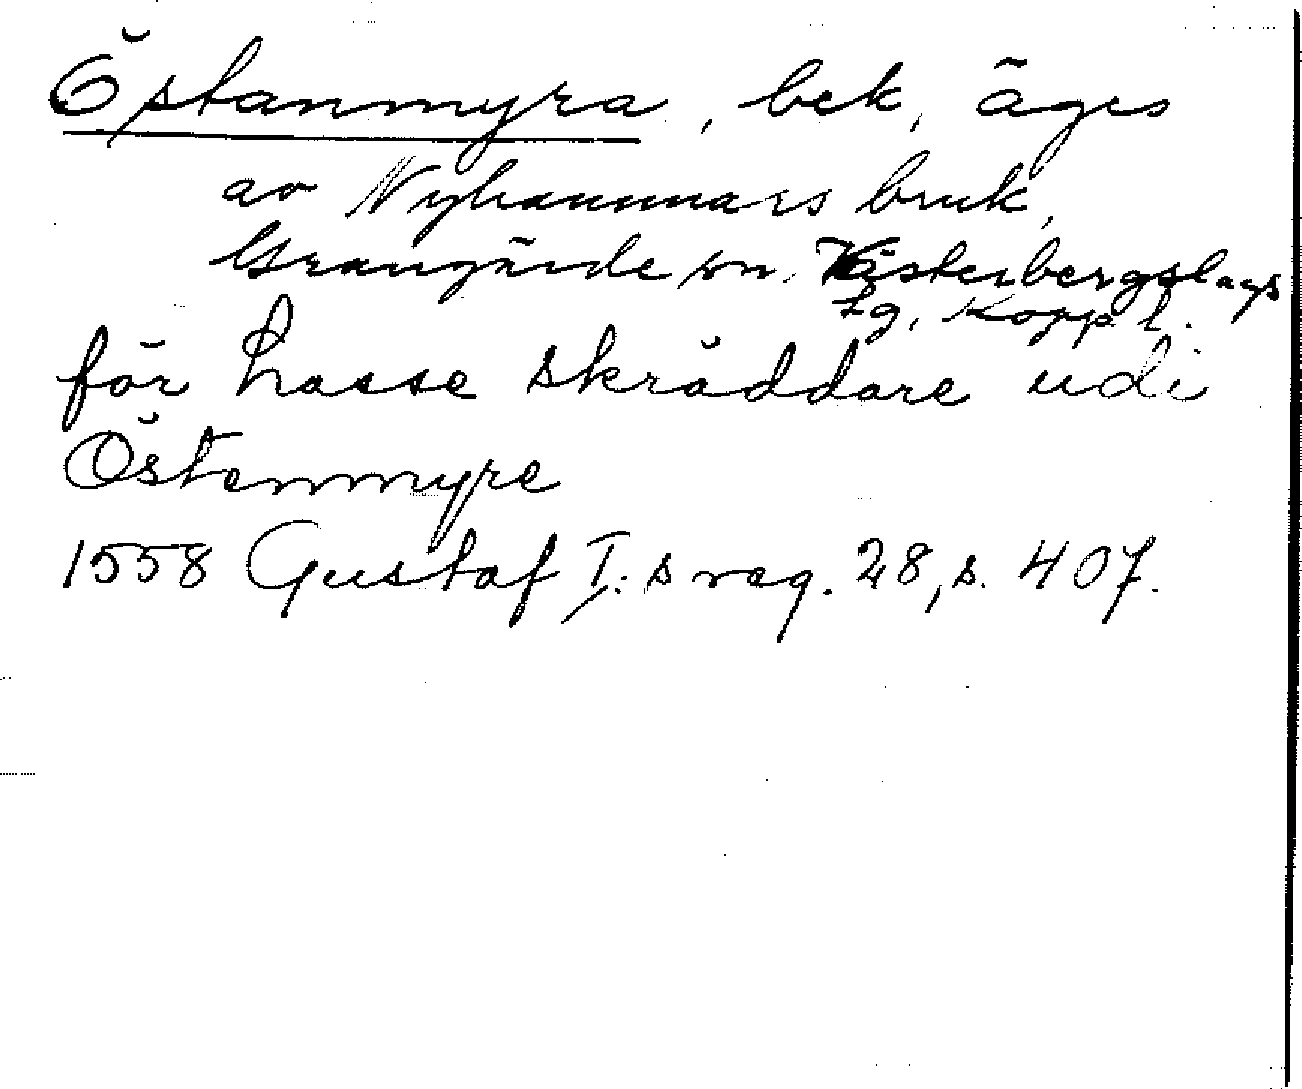 Östanmyra, bek, äges
av Nyhammars bruk,
Grangärde sn. Västerbergslags
fg, Kopp. l.
för Lasse skräddare udi
Östenmyre
1558 Gustaf I:s reg. 28, s. 407.